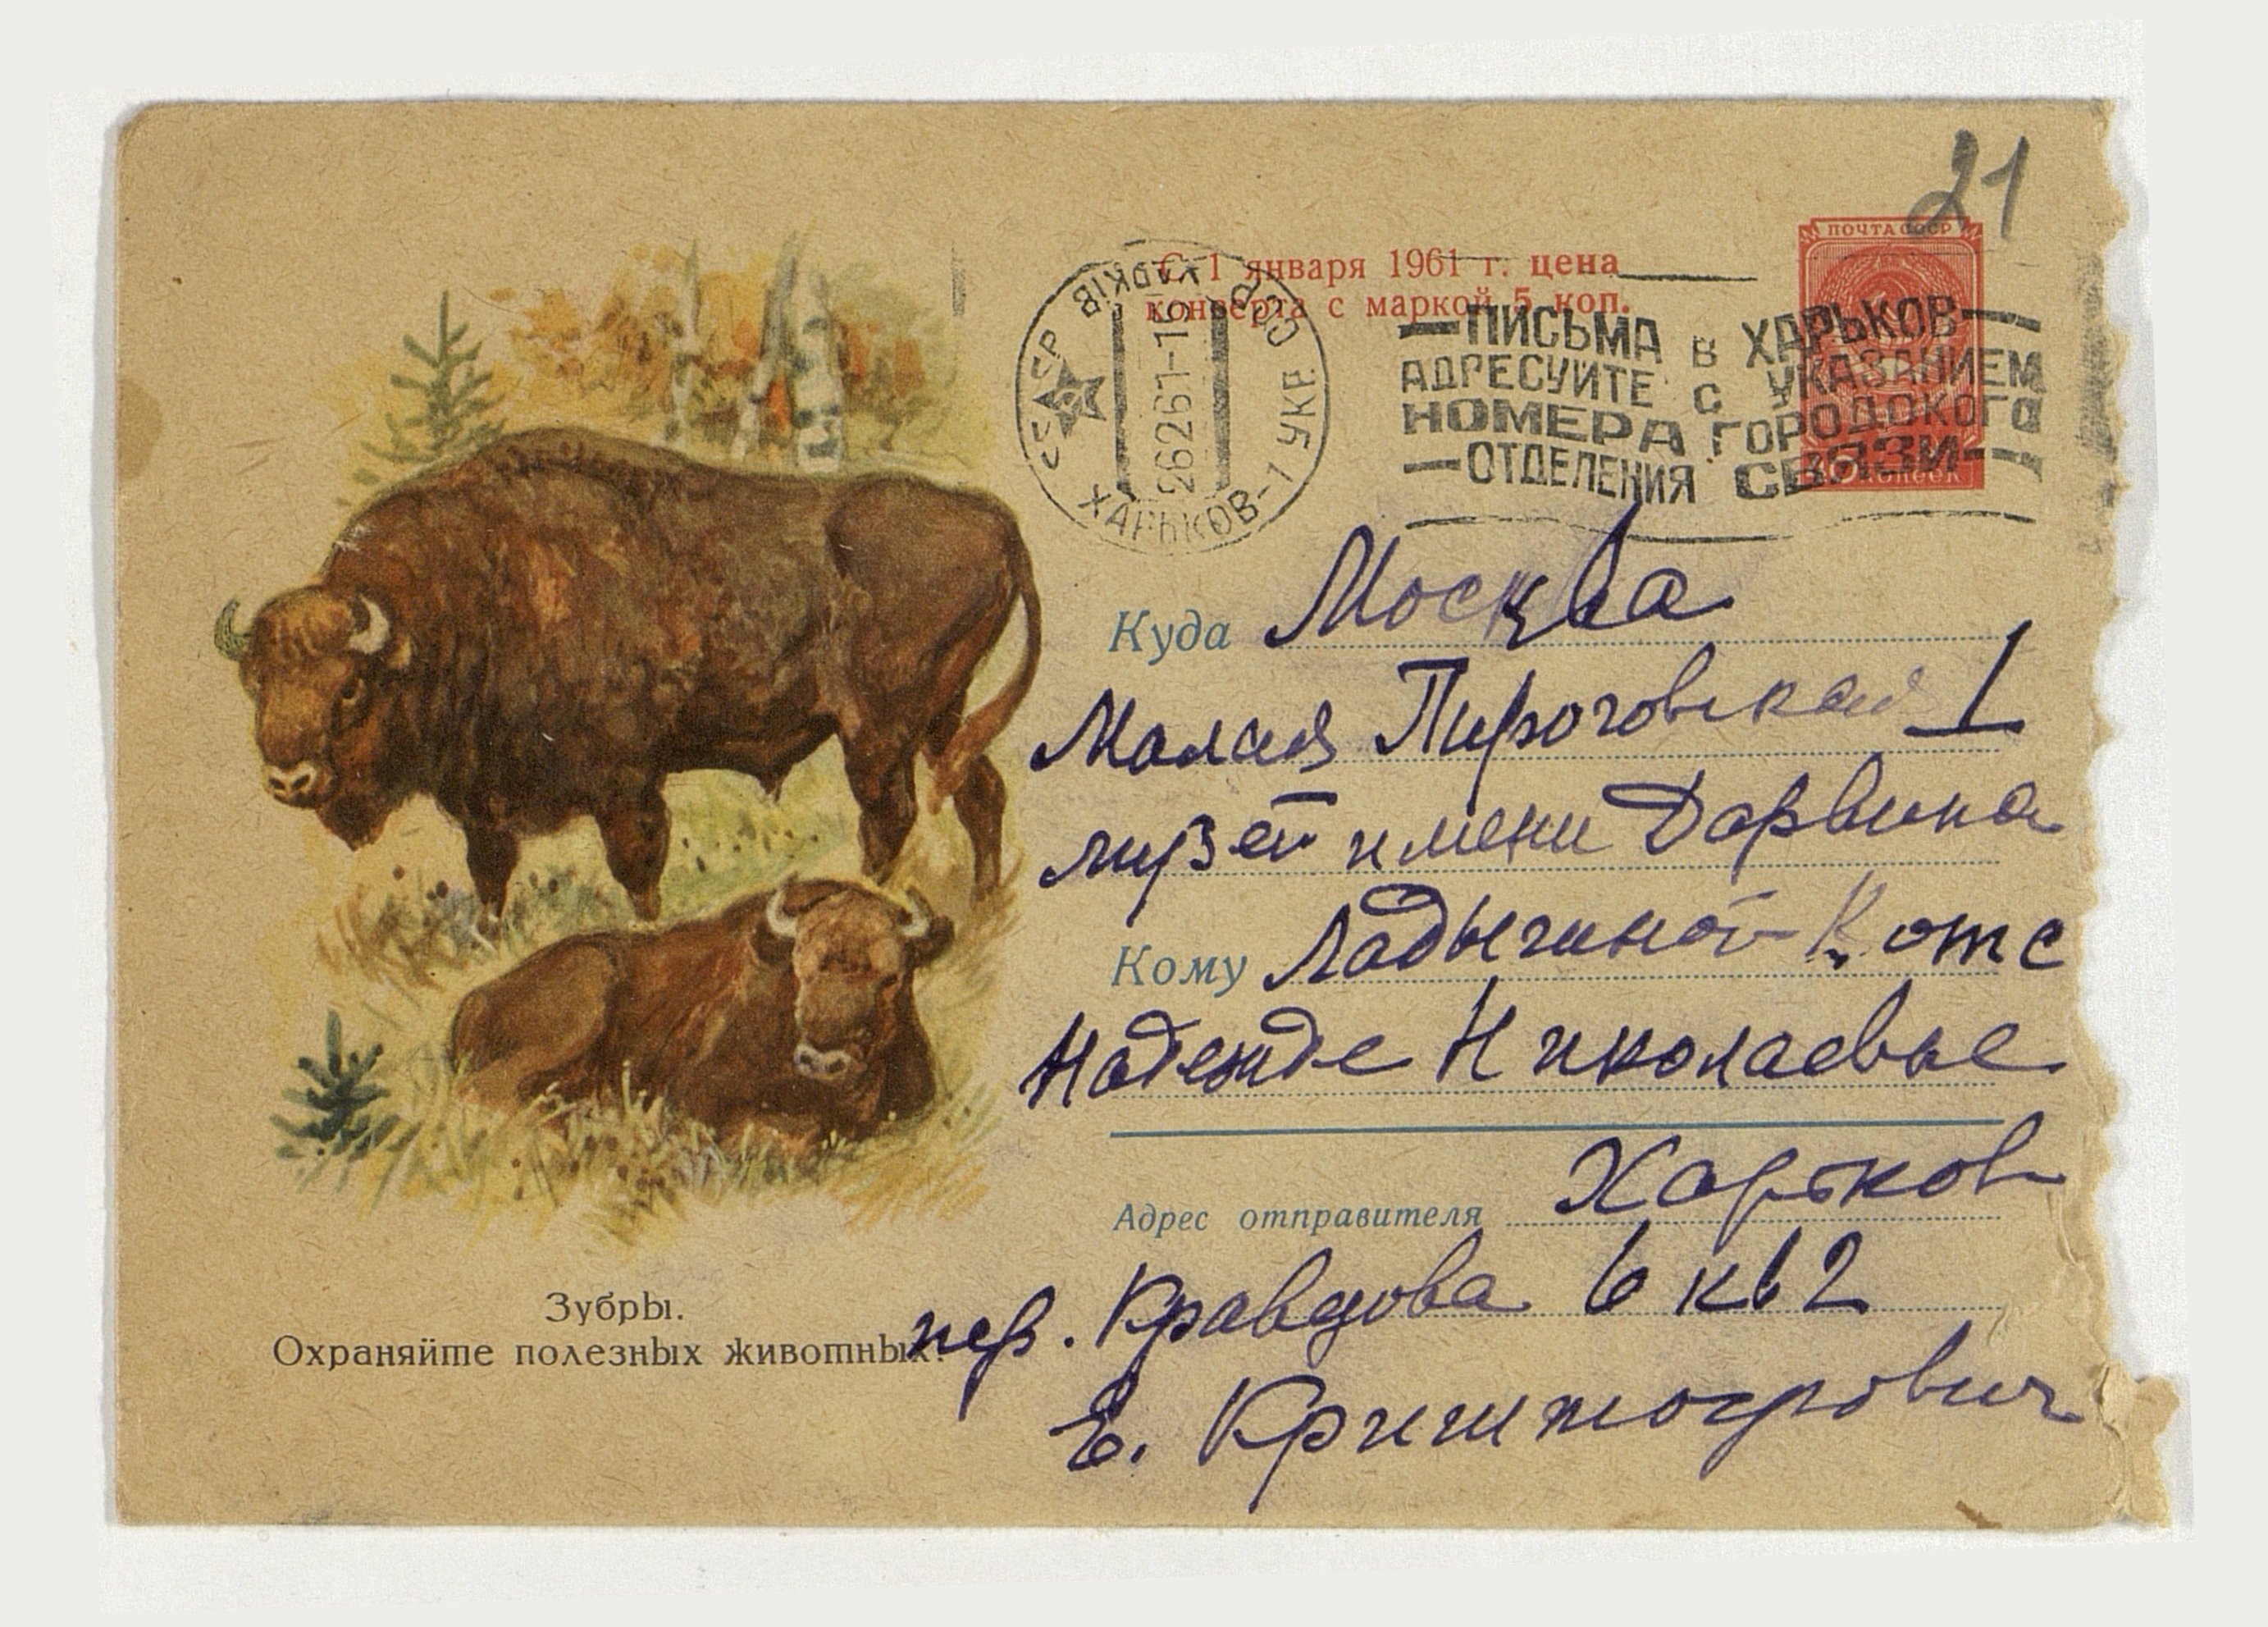 21
С 1 января 1961 г. цена
конверта с маркой 5 коп.
ПОЧТА СССР
СССР ХАРКІВ
26261-16
ХАРЬКОВ-1 УКР. ССР
ПИСЬМА В ХАРЬКОВ
АДРЕСУЙТЕ С УКАЗАНИЕМ
НОМЕРА ГОРОДСКОГО
ОТДЕЛЕНИЯ СВЯЗИ
копеек
Куда Москва
Малая Пироговская 1
музей имени Дарвина
Кому Ладыгиной Котс
Надежде Николаевне
Адрес отправителя Харьков
пер. Кравцова 6 кв 2
Е. Криштофович
Зубры.
Охраняйте полезных животных!